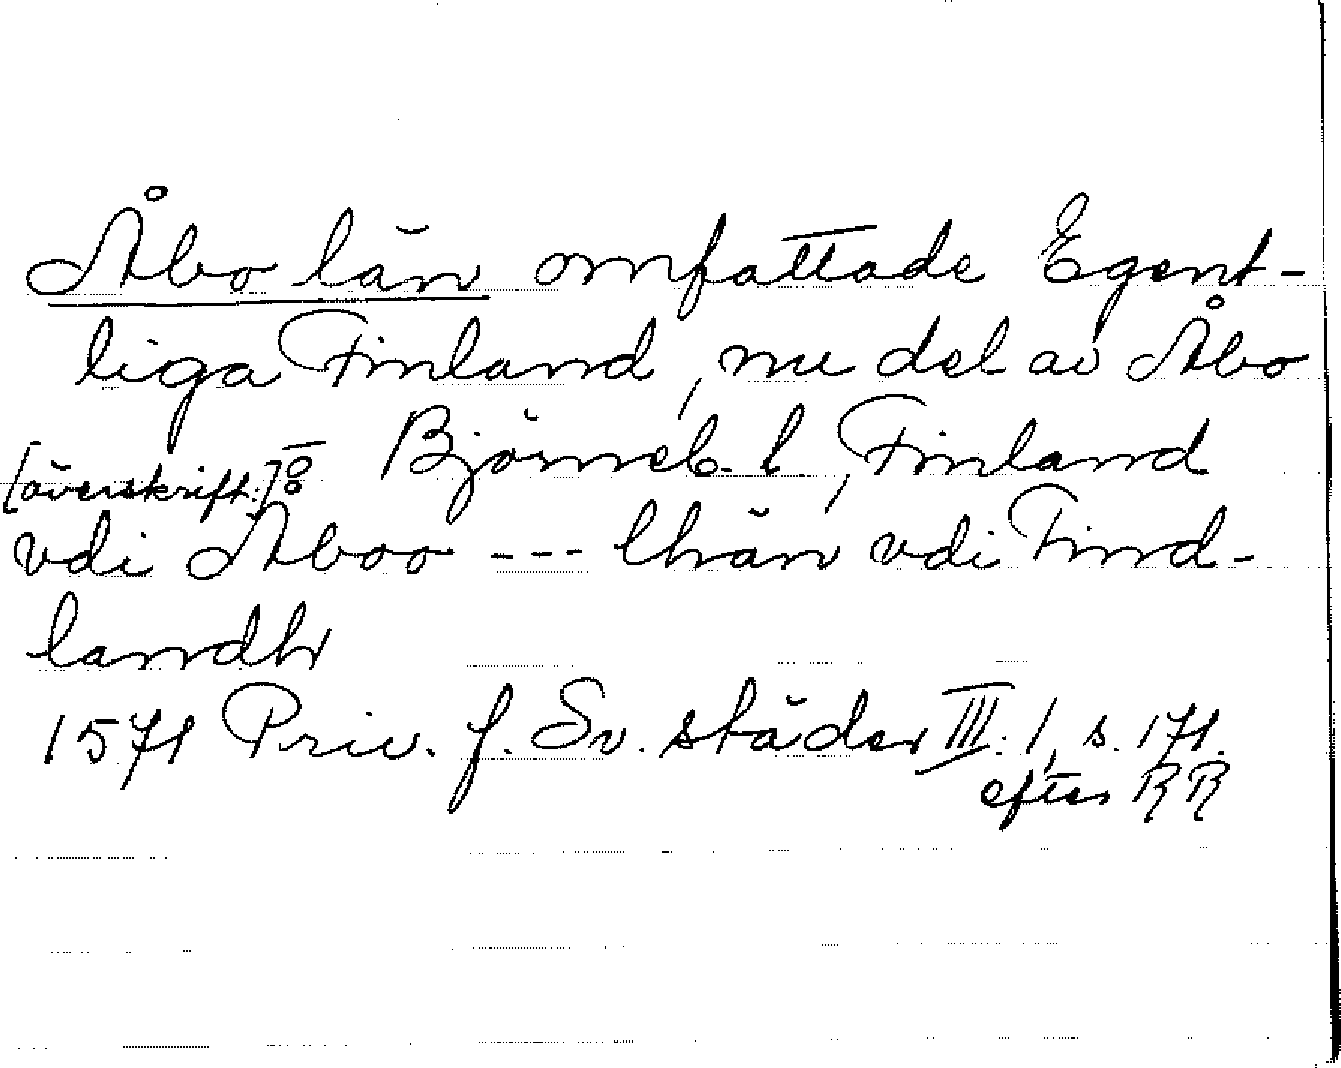 Åbo län omfattade Egent-
liga Finland, nu del av Åbo
Björneb. l, Finland
[överskrift:]
vdi Åboo --- lhän vdi Find-
landh
1571 Priv. f. Sv. städer III:1, s. 171.
efter RR